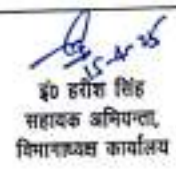 15-4-25
इं0 हरीश सिंह
सहायक अभियन्ता,
विभागाध्यक्ष कार्यालय